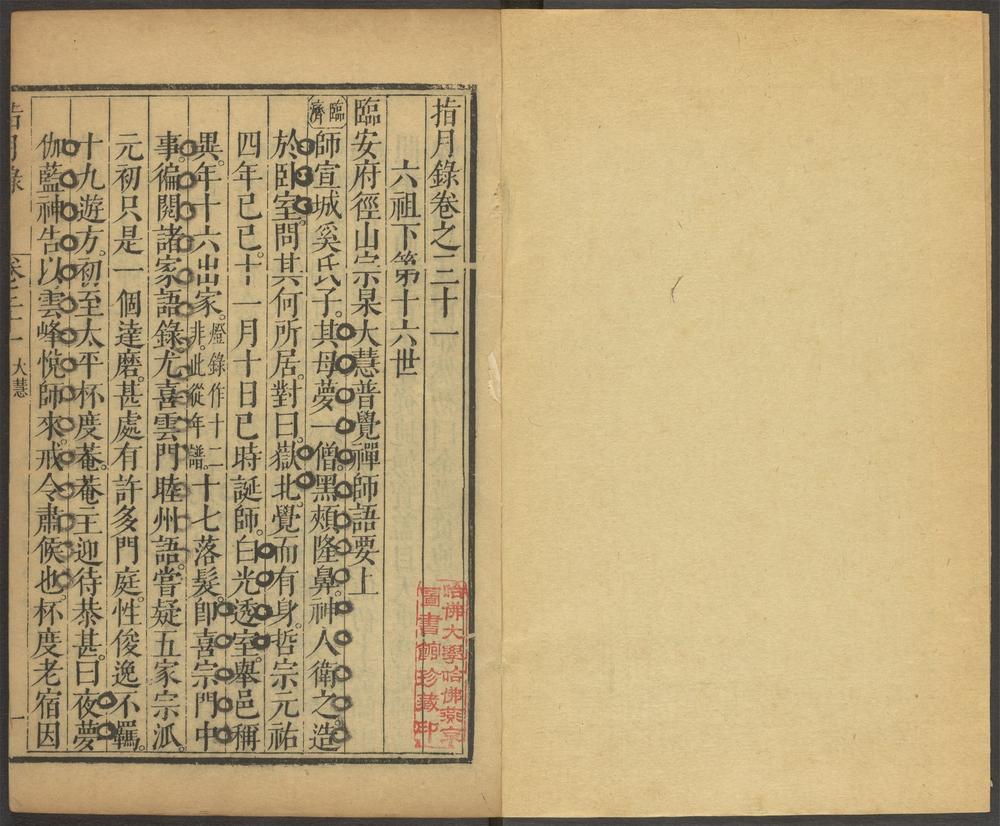 指月錄卷之三十一
六祖下第十六世
臨安府徑山宗杲大慧普覺禪師語要上
臨濟
師宣城奚氏子。其母夢一僧。黑頰隆鼻。神人衛之。造
於臥室。問其何所居。對曰。嶽北。覺而有身。哲宗元祐
四年己巳。十一月十日巳時誕師。白光透室。舉邑稱
異。年十六出家。燈錄作十二非。此從年譜。十七落髮。即喜宗門中
事。徧閱諸家語錄。尤喜雲門睦州語。嘗疑五家宗派。
元初只是一個達磨。甚處有許多門庭。性俊逸不羈。
十九遊方。初至太平杯度菴。菴主迎待恭甚。曰。夜夢
伽藍神告以雲峰悅師來。戒令肅候也。杯度老宿因
指月錄 卷三十一 大慧 一
哈佛大學哈佛燕京
圖書館珍藏印